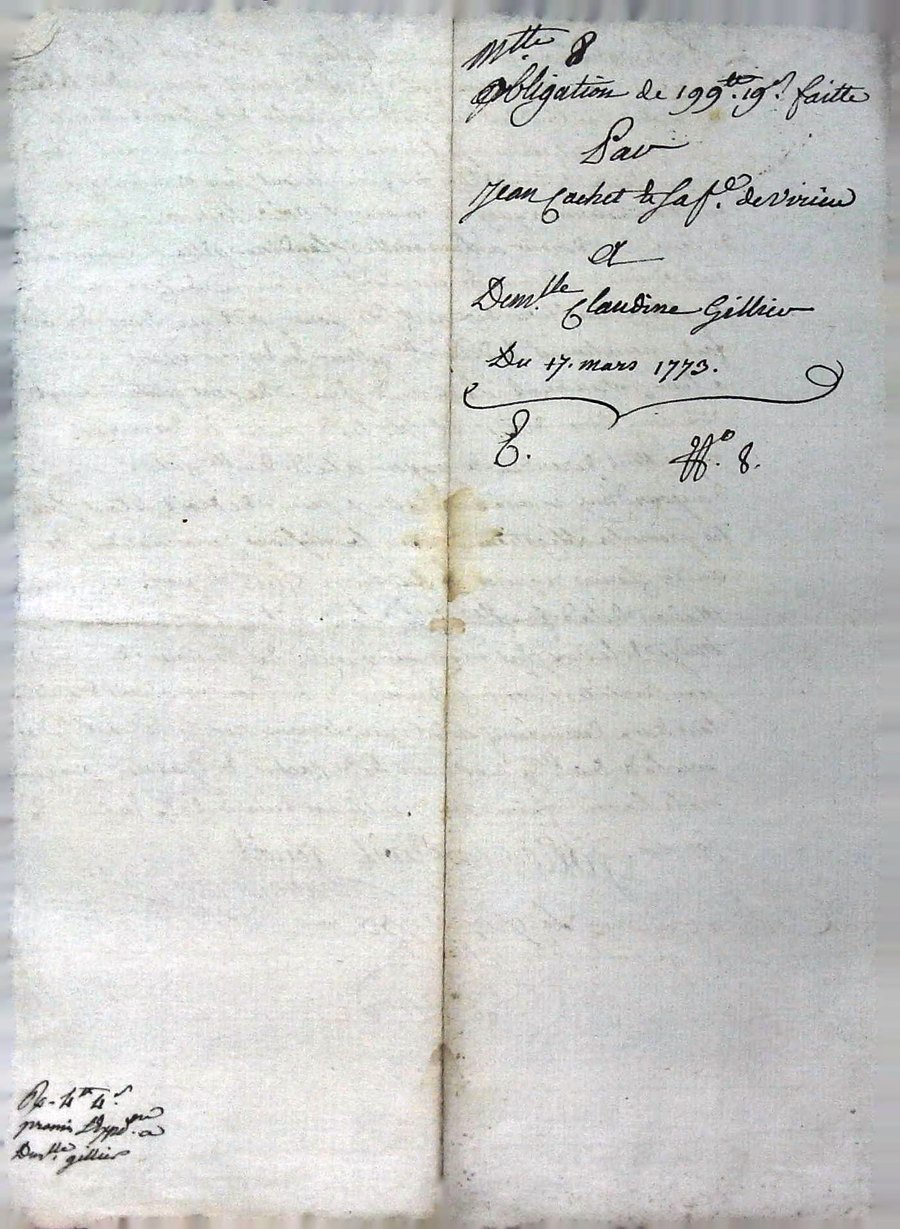 mtte 8
obligation de 199tt. 19s. faitte
Par
Jean Cachet & Sa fe. de virieu
a
Demlle. Claudine Gillier
Du 17. mars 1773.
E. No. 8.
4tt 4s
promis L'exped.on a
Demlle. gillier